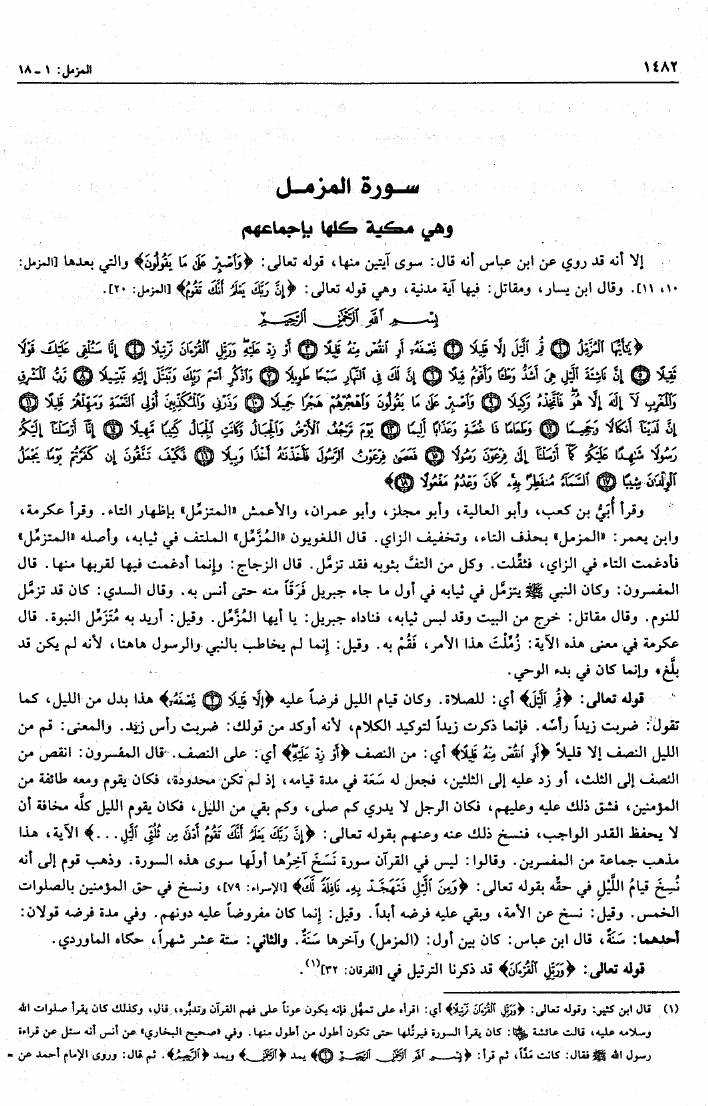 ١٤٨٢
المزمل: ١ - ١٨
سورة المزمل
وهي مكية كلها بإجماعهم
إلا أنه قد روي عن ابن عباس أنه قال: سوى آيتين منها، قوله تعالى: ﴿وَاصْبِرْ عَلَىٰ مَا يَقُولُونَ﴾ والتي بعدها [المزمل:
١٠، ١١]. وقال ابن يسار، ومقاتل: فيها آية مدنية، وهي قوله تعالى: ﴿إِنَّ رَبَّكَ يَعْلَمُ أَنَّكَ تَقُومُ﴾ [المزمل: ٢٠].
بِسْمِ اللَّهِ الرَّحْمَٰنِ الرَّحِيمِ
﴿يَٰٓأَيُّهَا الْمُزَّمِّلُ ١ قُمِ الَّيْلَ إِلَّا قَلِيلًا ٢ نِصْفَهُۥٓ أَوِ انقُصْ مِنْهُ قَلِيلًا ٣ أَوْ زِدْ عَلَيْهِ وَرَتِّلِ الْقُرْءَانَ تَرْتِيلًا ٤ إِنَّا سَنُلْقِى عَلَيْكَ قَوْلًا
ثَقِيلًا ٥ إِنَّ نَاشِئَةَ الَّيْلِ هِىَ أَشَدُّ وَطْـًٔا وَأَقْوَمُ قِيلًا ٦ إِنَّ لَكَ فِى النَّهَارِ سَبْحًا طَوِيلًا ٧ وَاذْكُرِ اسْمَ رَبِّكَ وَتَبَتَّلْ إِلَيْهِ تَبْتِيلًا ٨ رَّبُّ الْمَشْرِقِ
وَالْمَغْرِبِ لَآ إِلَٰهَ إِلَّا هُوَ فَاتَّخِذْهُ وَكِيلًا ٩ وَاصْبِرْ عَلَىٰ مَا يَقُولُونَ وَاهْجُرْهُمْ هَجْرًا جَمِيلًا ١٠ وَذَرْنِى وَالْمُكَذِّبِينَ أُو۟لِى النَّعْمَةِ وَمَهِّلْهُمْ قَلِيلًا ١١
إِنَّ لَدَيْنَآ أَنكَالًا وَجَحِيمًا ١٢ وَطَعَامًا ذَا غُصَّةٍ وَعَذَابًا أَلِيمًا ١٣ يَوْمَ تَرْجُفُ الْأَرْضُ وَالْجِبَالُ وَكَانَتِ الْجِبَالُ كَثِيبًا مَّهِيلًا ١٤ إِنَّآ أَرْسَلْنَآ إِلَيْكُمْ
رَسُولًا شَٰهِدًا عَلَيْكُمْ كَمَآ أَرْسَلْنَآ إِلَىٰ فِرْعَوْنَ رَسُولًا ١٥ فَعَصَىٰ فِرْعَوْنُ الرَّسُولَ فَأَخَذْنَٰهُ أَخْذًا وَبِيلًا ١٦ فَكَيْفَ تَتَّقُونَ إِن كَفَرْتُمْ يَوْمًا يَجْعَلُ
الْوِلْدَٰنَ شِيبًا ١٧ السَّمَآءُ مُنفَطِرٌۢ بِهِۦ كَانَ وَعْدُهُۥ مَفْعُولًا ١٨﴾
وقرأ أُبَيُّ بن كعب، وأبو العالية، وأبو مجلز، وأبو عمران، والأعمش «المتزمِّل» بإظهار التاء. وقرأ عكرمة،
وابن يعمر: «المزمل» بحذف التاء، وتخفيف الزاي. قال اللغويون «المُزَّمِّل» الملتف في ثيابه، وأصله «المتزمِّل»
فأدغمت التاء في الزاي، فثقِّلت. وكل من التفَّ بثوبه فقد تزمَّل. قال الزجاج: وإنما أدغمت فيها لقربها منها. قال
المفسرون: وكان النبي ﷺ يتزمَّل في ثيابه في أول ما جاء جبريل فَرَقاً منه حتى أنس به. وقال السدي: كان قد تزمَّل
للنوم. وقال مقاتل: خرج من البيت وقد لبس ثيابه، فناداه جبريل: يا أيها المُزَّمِّل. وقيل: أريد به مُتَزَمِّل النبوة. قال
عكرمة في معنى هذه الآية: زُمِّلْتَ هذا الأمر، فَقُمْ به. وقيل: إنما لم يخاطب بالنبي والرسول هاهنا، لأنه لم يكن قد
بلَّغ، وإنما كان في بدء الوحي.
قوله تعالى: ﴿قُمِ الَّيْلَ﴾ أي: للصلاة. وكان قيام الليل فرضاً عليه ﴿إِلَّا قَلِيلًا ٢ نِصْفَهُۥٓ﴾ هذا بدل من الليل، كما
تقول: ضربت زيداً رأسَه. فإنما ذكرت زيداً لتوكيد الكلام، لأنه أوكد من قولك: ضربت رأس زيد. والمعنى: قم من
الليل النصف إلا قليلاً ﴿أَوِ انقُصْ مِنْهُ قَلِيلًا﴾ أي: من النصف ﴿أَوْ زِدْ عَلَيْهِ﴾ أي: على النصف. قال المفسرون: انقص من
النصف إلى الثلث، أو زد عليه إلى الثلثين، فجعل له سَعَة في مدة قيامه، إذ لم تكن محدودة، فكان يقوم ومعه طائفة من
المؤمنين، فشق ذلك عليه وعليهم، فكان الرجل لا يدري كم صلى، وكم بقي من الليل، فكان يقوم الليل كلَّه مخافة أن
لا يحفظ القدر الواجب، فنسخ ذلك عنه وعنهم بقوله تعالى: ﴿إِنَّ رَبَّكَ يَعْلَمُ أَنَّكَ تَقُومُ أَدْنَىٰ مِن ثُلُثَىِ الَّيْلِ...﴾ الآية، هذا
مذهب جماعة من المفسرين. وقالوا: ليس في القرآن سورة نَسَخَ آخِرُها أولَها سوى هذه السورة. وذهب قوم إلى أنه
نُسِخَ قيامُ اللَّيْلِ في حقِّه بقوله تعالى: ﴿وَمِنَ الَّيْلِ فَتَهَجَّدْ بِهِۦ نَافِلَةً لَّكَ﴾ [الإسراء: ٧٩]، ونسخ في حق المؤمنين بالصلوات
الخمس. وقيل: نسخ عن الأمة، وبقي عليه فرضه أبداً. وقيل: إنما كان مفروضاً عليه دونهم. وفي مدة فرضه قولان:
أحدهما: سَنَةٌ، قال ابن عباس: كان بين أول: (المزمل) وآخرها سَنَةٌ. والثاني: ستة عشر شهراً، حكاه الماوردي.
قوله تعالى: ﴿وَرَتِّلِ الْقُرْءَانَ﴾ قد ذكرنا الترتيل في [الفرقان: ٣٢](١).
(١) قال ابن كثير: وقوله تعالى: ﴿وَرَتِّلِ الْقُرْءَانَ تَرْتِيلًا﴾ أي: اقرأه على تمهُّل فإنه يكون عوناً على فهم القرآن وتدبُّره، قال، وكذلك كان يقرأ صلوات الله
وسلامه عليه، قالت عائشة رضي الله عنها: كان يقرأ السورة فيرتُّلها حتى تكون أطول من أطول منها. وفي «صحيح البخاري» عن أنس أنه سئل عن قراءة
رسول الله ﷺ فقال: كانت مدّاً، ثم قرأ: ﴿بِسْمِ اللَّهِ الرَّحْمَٰنِ الرَّحِيمِ ١﴾ يمد ﴿الرَّحْمَٰنِ﴾ ويمد ﴿الرَّحِيمِ﴾. ثم قال: وروى الإمام أحمد عن =